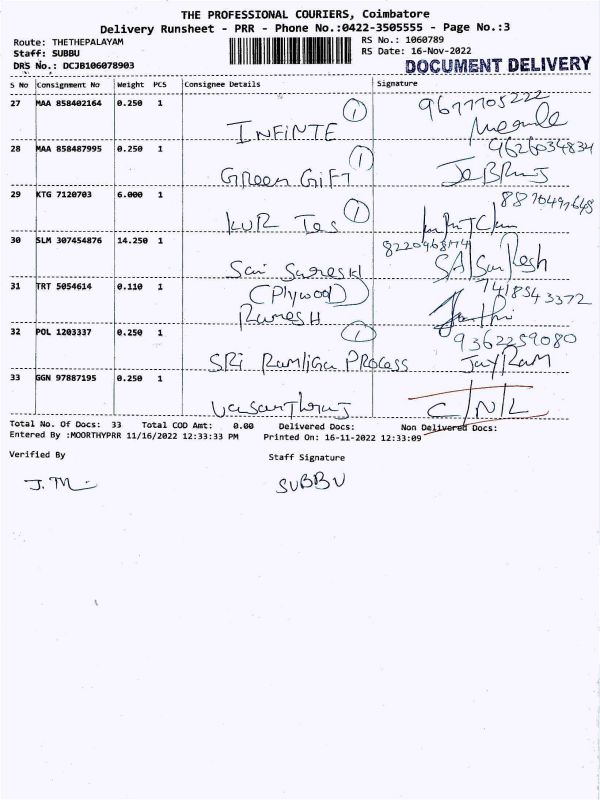 THE PROFESSIONAL COURIERS, Coimbatore
Delivery Runsheet - PRR - Phone No.:0422-3505555 - Page No.:3
Route: THETHEPALAYAM
RS No.: 1060789
Staff: SUBBU
RS Date: 16-Nov-2022
DRS No.: DCJB106078903
DOCUMENT DELIVERY
S No Consignment No Weight PCS Consignee Details Signature
27 MAA 858402164 0.250 1 INFINTE 1
28 MAA 858487995 0.250 1 GReen GiFT 1 9626034834
29 KTG 7120703 6.000 1 KUR Tes 1
30 SLM 307454876 14.250 1 Sai Suresh
31 TRT 5054614 0.110 1 (Plywood) 7418543372
RameSH
32 POL 1203337 0.250 1 SRi RamliGa PROCess 1 9362259080
JayRam
33 GGN 97887195 0.250 1 C/N/L
Total No. Of Docs: 33 Total COD Amt: 0.00 Delivered Docs: Non Delivered Docs:
Entered By :MOORTHYPRR 11/16/2022 12:33:33 PM Printed On: 16-11-2022 12:33:09
Verified By
Staff Signature
SUBBU